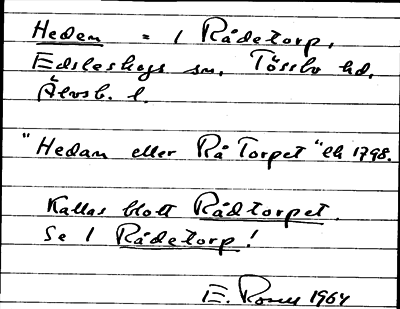 Hedem = 1 Rådetorp,
Edsleskogs sn, Tössbo hd,
Älvsb. l.
"Hedam eller Rå Torpet" ek 1798.
Kallas blott Rådtorpet.
Se 1 Rådetorp!
E. 1964